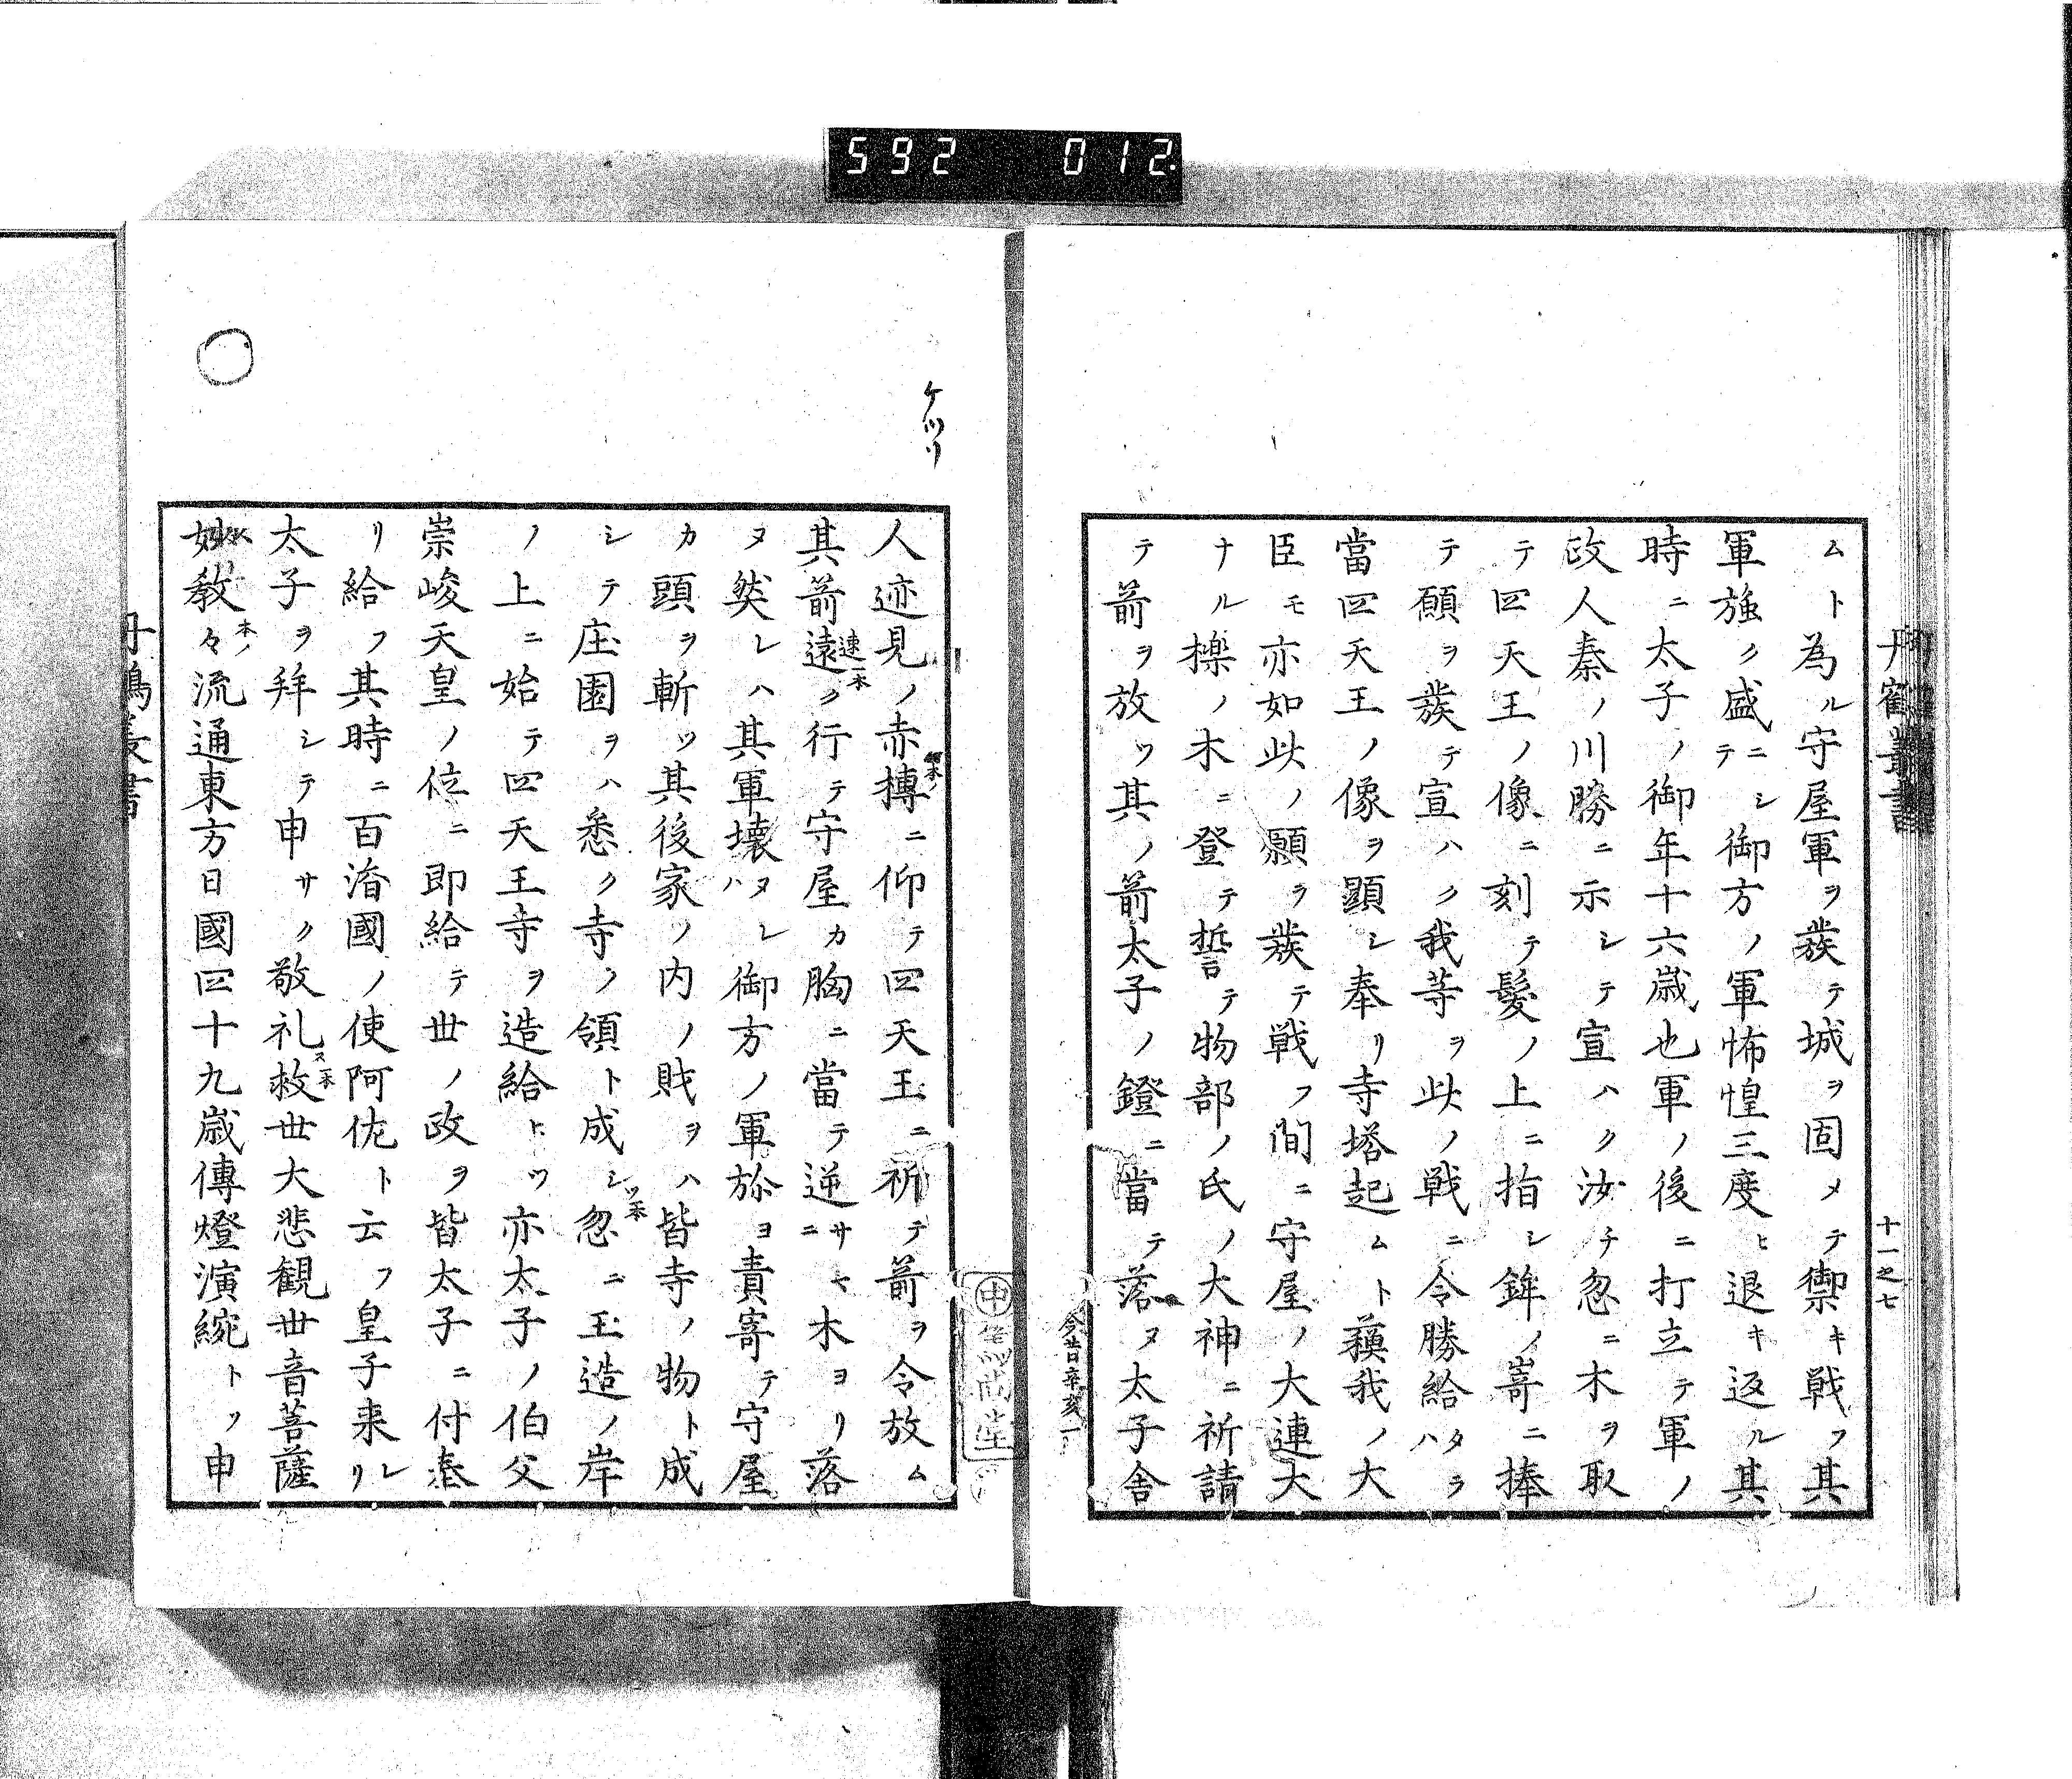 592 012.
丹鶴叢書
十一之七
ムト為ル守屋軍ヲ䔍テ城ヲ固メテ禦キ戦フ其
軍強ク盛ニシテ御方ノ軍怖惶三度ヒ退キ返ル其
時ニ太子ノ御年十六歳也軍ノ後ニ打立テ軍ノ
政人秦ノ川勝ニ示シテ宣ハク汝チ忽ニ木ヲ取
テ四天王ノ像ニ刻テ髪ノ上ニ指シ鉾ノ嵜ニ捧
テ願ヲ䔍テ宣ハク我等ヲ此ノ戦ニ令勝給タラハ
當四天王ノ像ヲ顕シ奉リ寺塔起ムト蘓我ノ大
臣モ亦如此ノ願ヲ䔍テ戦フ間ニ守屋ノ大連大
ナル櫟ノ木ニ登テ誓テ物部ノ氏ノ大神ニ祈請
テ箭ヲ放ツ其ノ箭太子ノ鐙ニ當テ落ヌ太子舎
今昔辛亥一
ケツリ
人迹見ノ赤榑ニ仰テ四天王ニ祈テ箭ヲ令放ム
其箭遠速一本ク行テ守屋カ胸ニ當テ逆サマニ木ヨリ落
ヌ㷼レハ其軍壊ヌレハ御方ノ軍旀ヨ責寄テ守屋
カ頭ヲ斬ツ其後家ノ内ノ財ヲハ皆寺ノ物ト成
シテ庄園ヲハ悉ク寺ノ領ト成シツ本忽ニ玉造ノ岸
ノ上ニ始テ四天王寺ヲ造給ヒツ亦太子ノ伯父
崇峻天皇ノ位ニ即給テ世ノ政ヲ皆太子ニ付奉
リ給フ其時ニ百済國ノ使阿佐ト云フ皇子来レリ
太子ヲ拜シテ申サク敬礼救ス一本世大悲観世音菩薩
妙教々本ノ流通東方日國四十九歳傳燈演綩トソ申